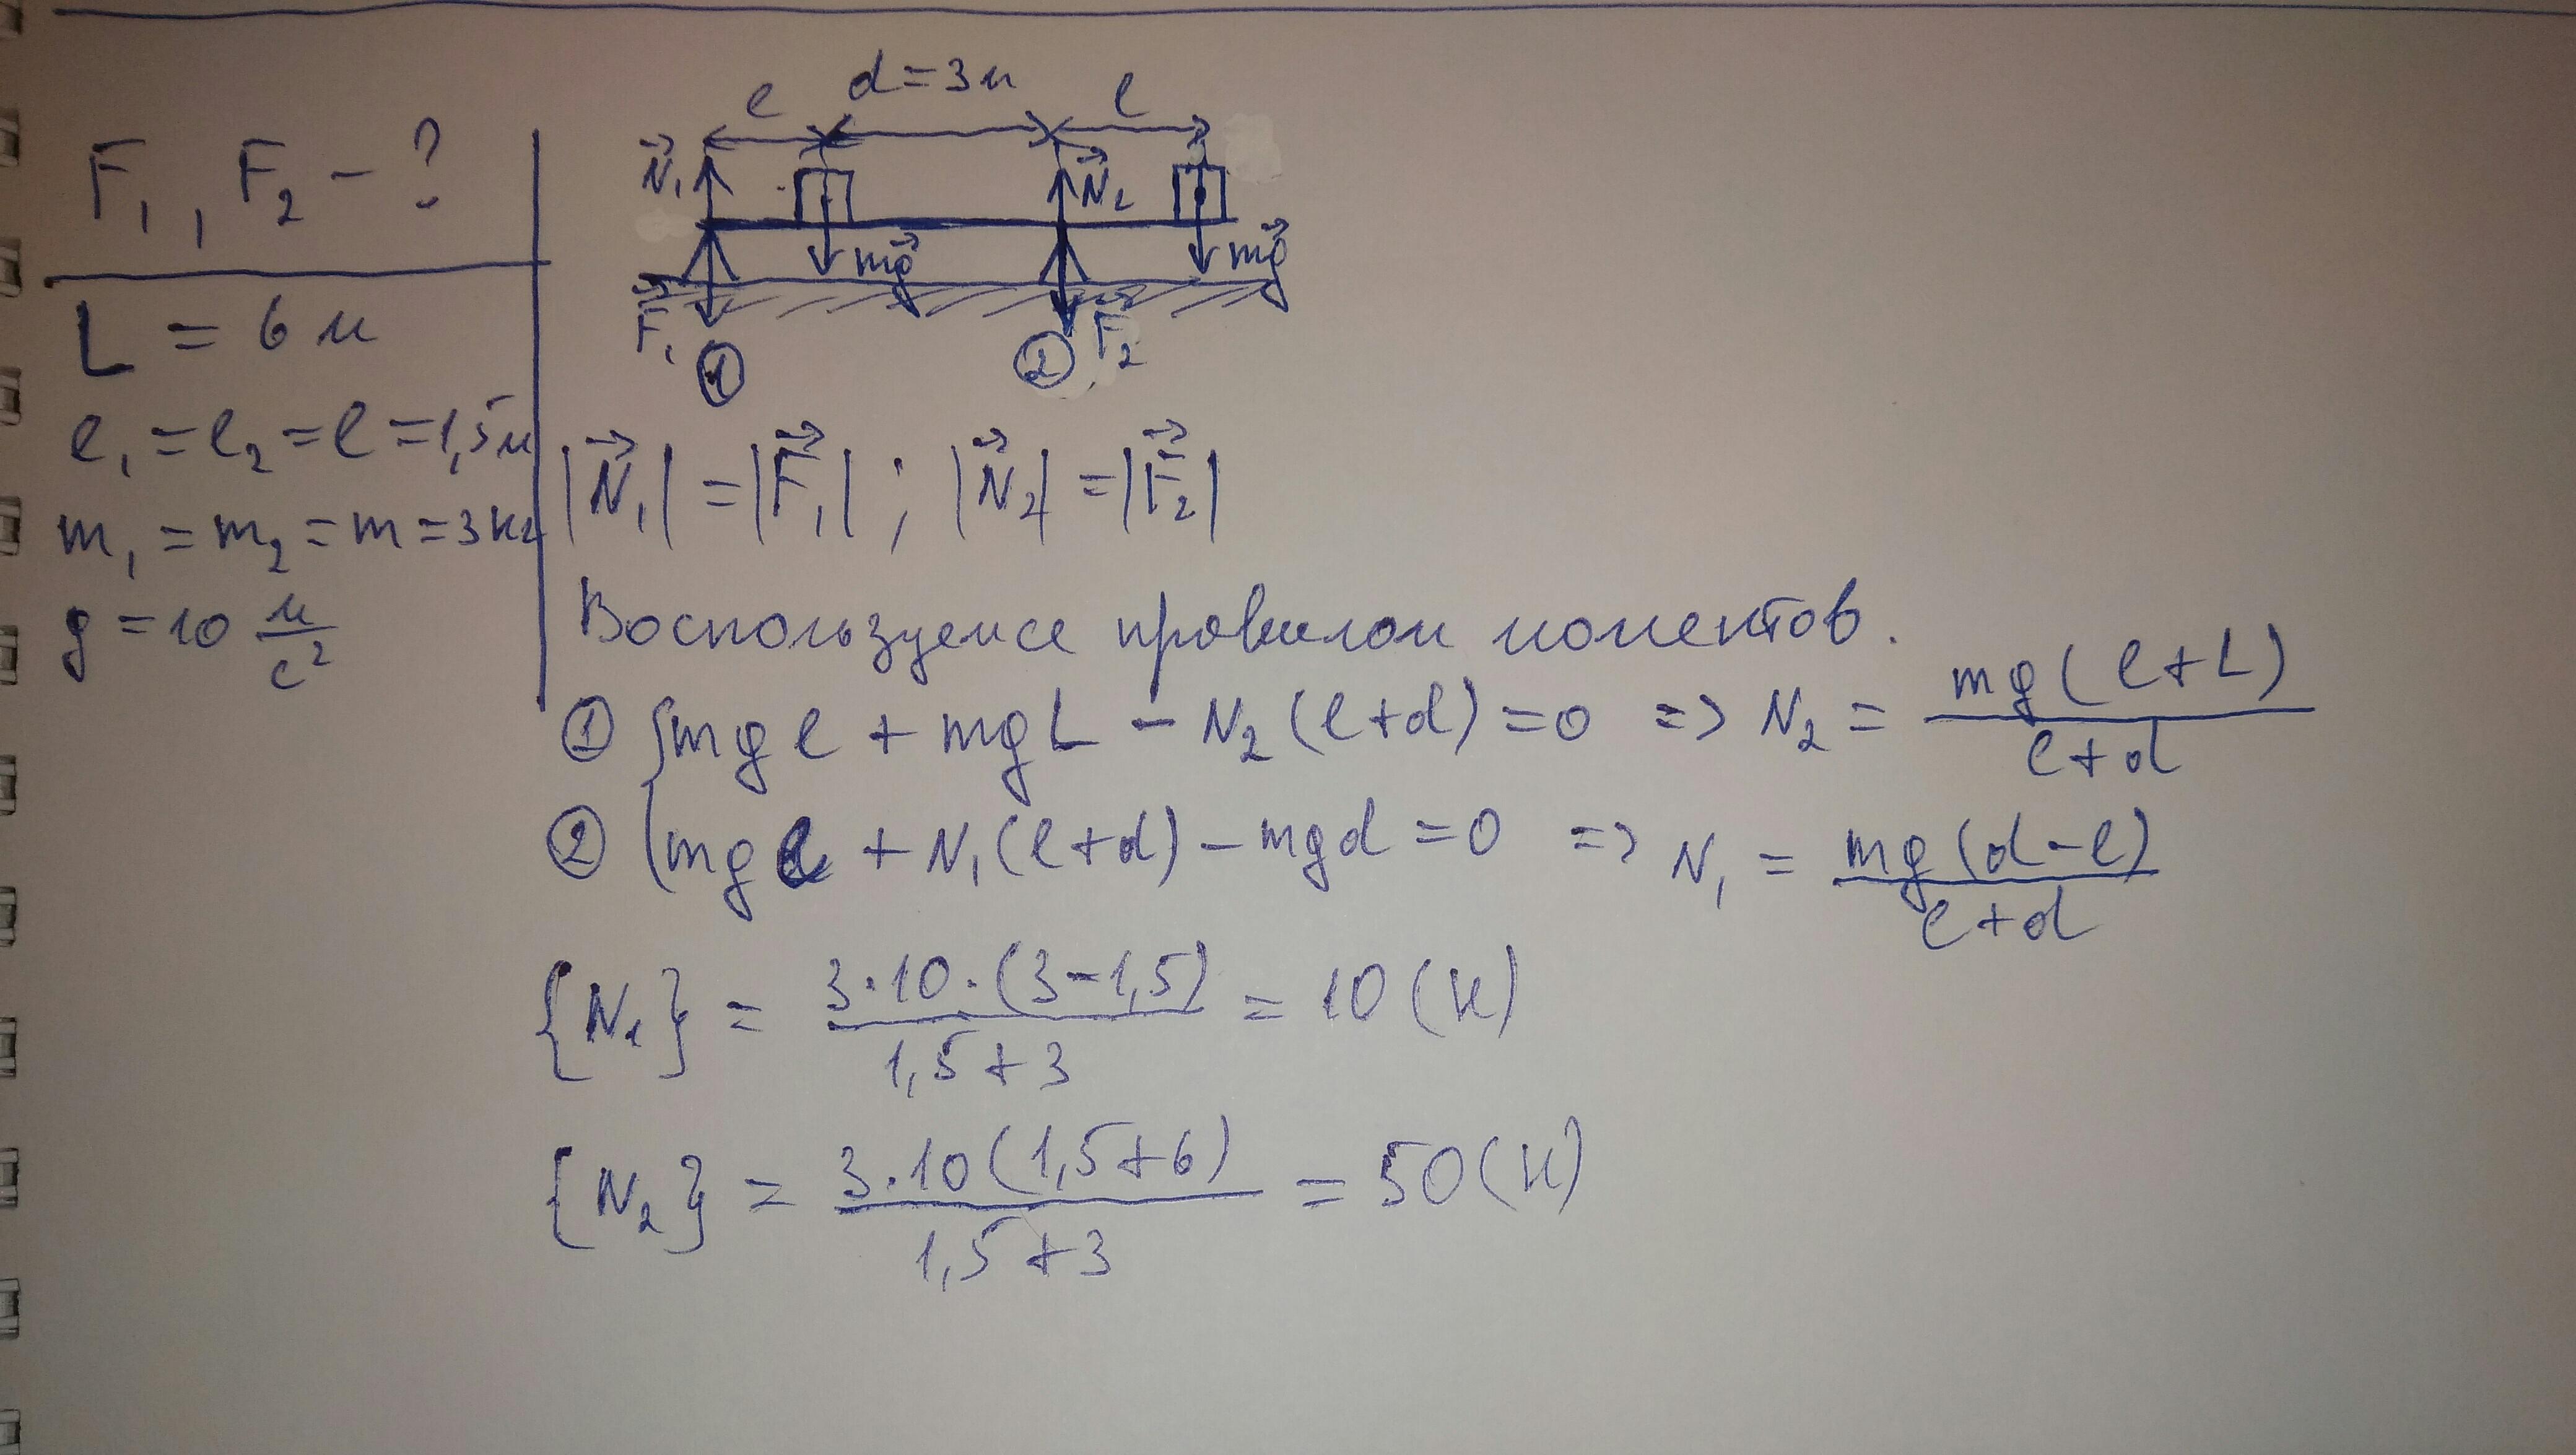 F₁, F₂ - ?
L = 6 м
l₁ = l₂ = l = 1,5 м
m₁ = m₂ = m = 3 кг
g = 10 м/с²
l d = 3 м l
N⃗₁ N⃗₂
mg⃗ mg⃗
F⃗₁ F⃗₂
① ②
|N⃗₁| = |F⃗₁| ; |N⃗₂| = |F⃗₂|
Воспользуемся правилом моментов.
① { mgl + mgL - N₂(l+d) = 0 => N₂ = mg(l+L) / l+d
② { mgl + N₁(l+d) - mgd = 0 => N₁ = mg(d-l) / l+d
{N₁} = 3·10·(3-1,5) / 1,5+3 = 10 (Н)
{N₂} = 3·10(1,5+6) / 1,5+3 = 50 (Н)